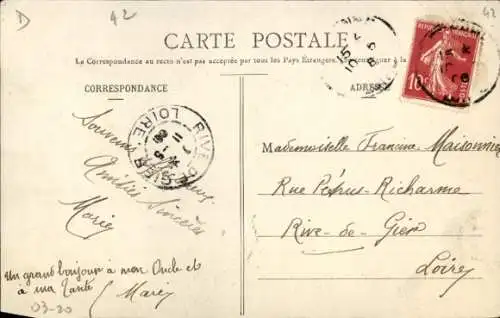 D
42
42
CARTE POSTALE
La Correspondance au recto n'est pas acceptée par tous les Pays Étrangers.
CORRESPONDANCE
ADRESSE
RIVE-DE-GIER
LOIRE
10c
Souvenir
Amitiés Sincères
Marie
Un grand bonjour à mon Oncle et
à ma Tante
Marie
03-20
Mademoiselle Francine Maisonne
Rue Pétrus-Richarme
Rive-de-Gier
Loire